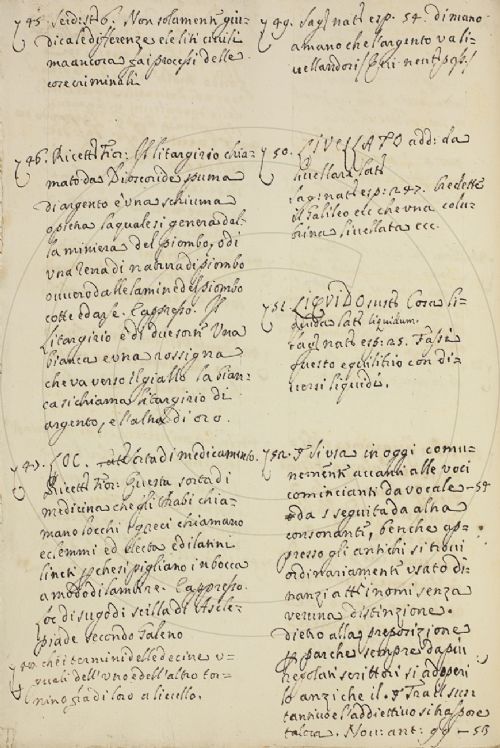 745. Scid: st: 6. Non solamente giu-
dicale differenze e le liti civili
ma ancora gai processi delle
cose criminali.
746. Ricett: Fior: Il litargirio chia-
mato da Dioscoride spuma
di argento è una schiuma
la quale si genera dal-
la miniera del piombo, o di
una rena di natura di piombo
ouuero dalle lamine del piombo
cotte ed arse. E appresso. Il
litargirio è di due sorti Una
bianca e una rossigna
che va verso il giallo la bian-
ca si chiama litargirio di
argento, e l'altra di oro.
747. LOC. sorta di medicamento.
Ricett: Fior: Questa sorta di
medicina che gli Arabi chia-
mano locchi i greci chiamano
eclemmi ed electa ed i latini
lincti pchesi pigliano in bocca
a modo di lambire. E appresso.
Loc di sugo di scilla di Ascle-
piade secondo Galeno
748. che i termini delle decine u-
guali dell'uno e dell'altro tor-
nino già di loro a livello.
749. Sag: nat: esp: 54. di mano
a mano che l'argento va li-
vellandosi
750. LIVELLATO add: da
livellare lat:
sag: nat: esp: 247. credette
il Galileo ecc che una colu-
brina livellata ecc.
751. LIQUIDO sust: Cosa li-
quida lat: liquidum.
sag: nat: esp: 25. Fassi
questo equilibrio con di-
versi liquidi.
752. si usa in oggi comu-
nemente avanti alle voci
comincianti da vocale - 54
o da s seguita da altra
consonante, benche ap-
presso gli antichi si trovi
ordinariamente usato di-
nanzi a tt i nomi senza
veruna distinzione.
dietro alla preposizione
p par che sempre da più
regolati scrittori si adoperi
lo anzi che il. Tra el sus-
tantivo e l'addiettivo si haspore
talora. Nov: ant: 99 - 53